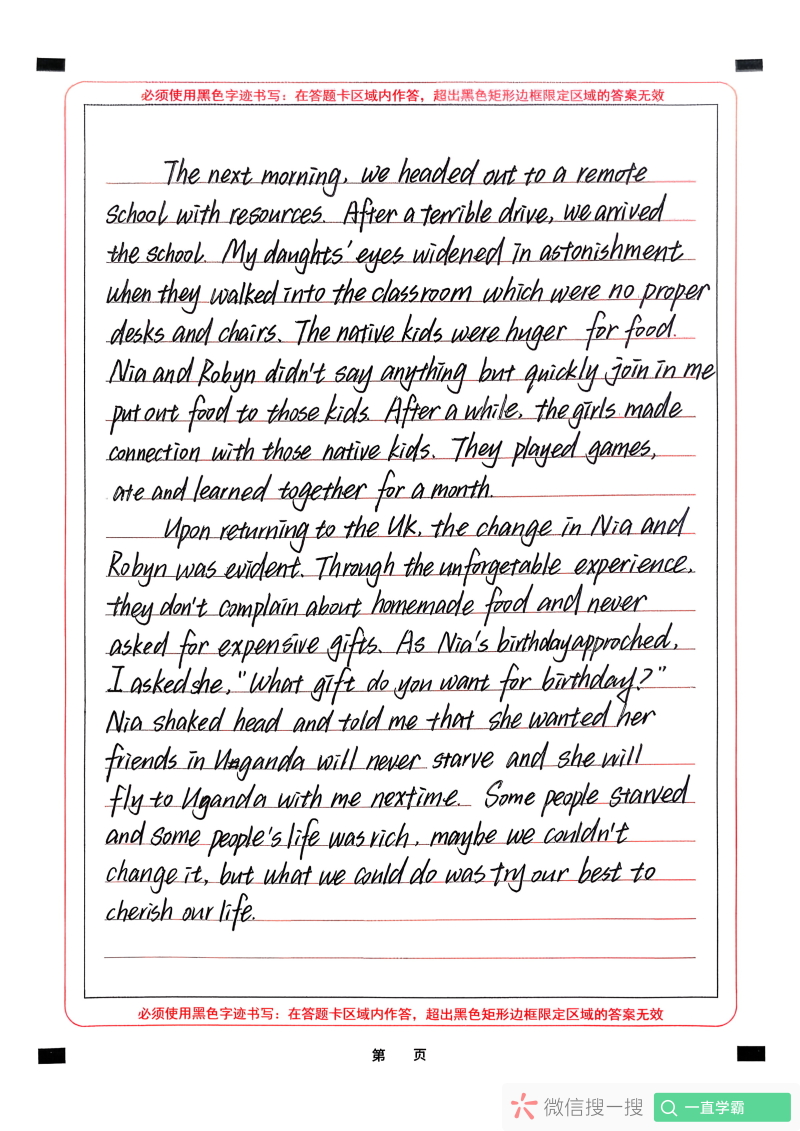 必须使用黑色字迹书写：在答题卡区域内作答，超出黑色矩形边框限定区域的答案无效
The next morning, we headed out to a remote
school with resources. After a terrible drive, we arrived
the school. My daughts' eyes widened in astonishment
when they walked into the classroom which were no proper
desks and chairs. The native kids were huger for food.
Nia and Robyn didn't say anything but quickly join in me
put out food to those kids. After a while, the girls made
connection with those native kids. They played games,
ate and learned together for a month.
Upon returning to the UK, the change in Nia and
Robyn was evident. Through the unforgetable experience,
they don't complain about homemade food and never
asked for expensive gifts. As Nia's birthday approched,
I asked she, "What gift do you want for birthday?"
Nia shaked head and told me that she wanted her
friends in Uganda will never starve and she will
fly to Uganda with me nextime. Some people starved
and some people's life was rich, maybe we couldn't
change it, but what we could do was try our best to
cherish our life.
必须使用黑色字迹书写：在答题卡区域内作答，超出黑色矩形边框限定区域的答案无效
第 页
微信搜一搜 一直学霸